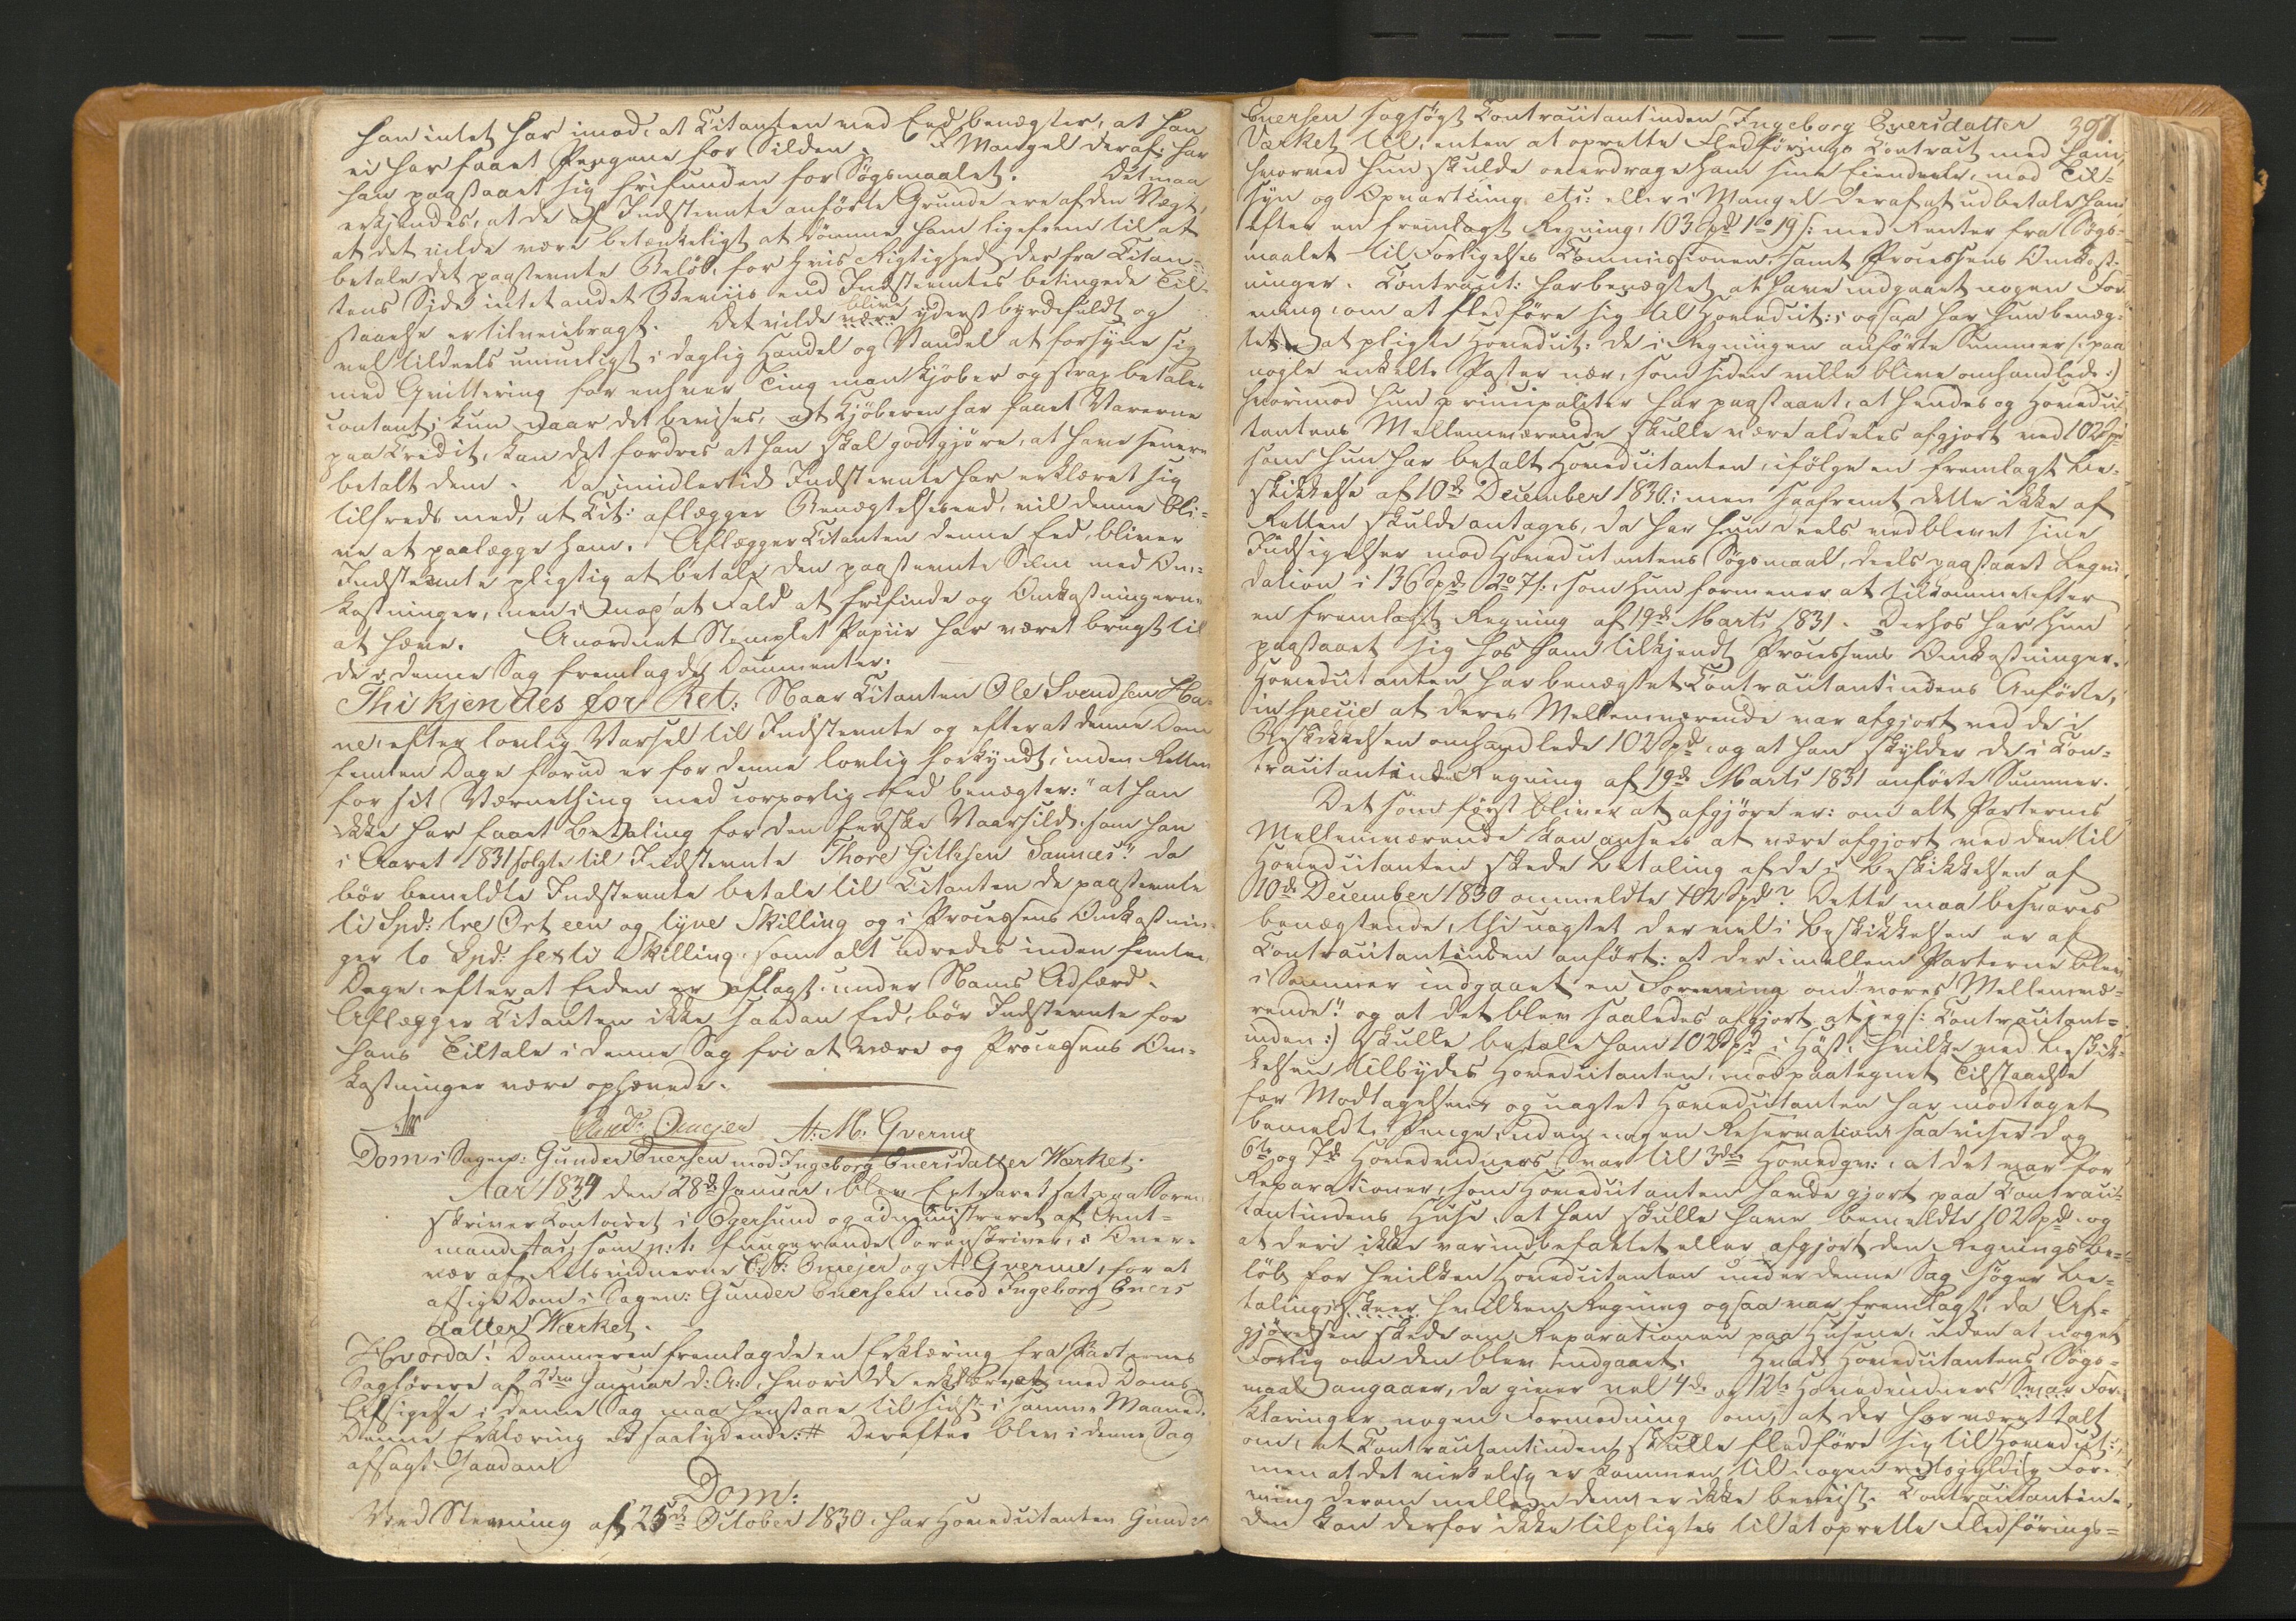 han intet har imod, at Citanten med Eed benægter, at han
ei har faaet Pengene for Silden. I Mangel deraf har
han paastaaet sig frifunden for Søgsmaalet. Det maa
erkjendes, at de af Indstevnte anførte Grunde ere af den Vægt,
at det vilde være betænkeligt at dømme ham ligefrem til at
betale det paastevnte Beløb, for hvis Rigtighed der fra Citan-
tens Side intet andet Beviis end Indstevntes betingede Til-
staaelse er tilveiebragt. Det vilde være blive yderst byrdefuldt og
vel tildeels umueligt i daglig Handel og Vandel at forsyne sig
med Qvittering for enhver Ting man kjøber og strax betaler
contant; kun naar det bevises, at Kjøberen har faaet Varerne
paa Credit, kan det fordres at han skal godtgjøre, at have senere
betalt dem. Da imidlertid Indstevnte har erklæret sig
tilfreds med, at Cit: aflægger Benægtelseseed, vil denne bli-
ve at paalægge ham. Aflægger Citanten denne Eed, bliver
Indstevnte pligtig at betale den paastevnte Sum med Om-
kostninger, men i modsat Fald at frifinde og Omkostningerne
at hæve. Anordnet Stemplet Papiir har været brugt til
de i denne Sag fremlagde Documenter.
Thi kjendes for Ret: Naar Citanten Ole Svendsen Ha-
ne, efter lovlig Varsel til Indstevnte og efterat denne Dom
femten Dage forud er for denne lovlig forkyndt, inden Retten
for sit Værnething med corporlig Eed benægter: "at han
ikke har faaet Betaling for den ferske Vaarsild, som han
i Aaret 1831 solgte til Indstevnte Thore Gitlesen Saunæs", da
bør bemeldte Indstevnte betale til Citanten de paastevnte
ti Spd: tre Ort een og tyve Skilling og i Processens Omkostnin-
ger to Spd: sexti Skilling, som alt udredes inden femten
Dage, efterat Eeden er aflagt, under Nams Adfærd.
Aflægger Citanten ikke saadan Eed, bør Indstevnte for
hans Tiltale i denne Sag fri at være og Processens Om-
kostninger være ophævede.
A: M: Gverne
Dom i Sagen: Gunder Eversen mod Ingeborg Eversdatter Wærket.
Aar 1834 den 28de Januar, blev Extraret sat paa Soren-
skriver Contoiret i Egersund og administreret af Amt-
mand Aas, som p: t: fungerende Sorenskriver, i Over-
vær af Retsvidnerne C. A: Omejer og A Gverne, for at
afsige Dom i Sagen: Gunder Eversen mod Ingeborg Evers
datter Wærket.
Hvorda! Dommeren fremlagde en Erklæring fra Parternes
Sagførere af 2den Januar d: A:, hvori de erklære at med Doms
Afsigelse i denne Sag maa henstaae til sidst i samme Maaned.
Denne Erklæring er saalydende: # Derefter blev i denne Sag
afsagt saadan
Dom:
Ved Stevning af 25de October 1830, har Hovedcitanten Gunder
397.
Eversen sagsøgt Contracitantinden Ingeborg Eversdatter
Værket til, enten at oprette Fledførings Contract med ham,
hvorved hun skulde overdrage ham sine Eiendeele, mod Til-
syn og Opvartning etc: eller i Mangel deraf at udbetale ham
efter en fremlagt Regning, 103 Spd 1o 19 s: med Renter fra Søgs-
maalet til Forligelses Commissionen, samt Processens Omkost-
ninger. Contracit: har benægtet at have indgaaet nogen For-
ening, om at fledføre sig til Hovedcit:; ogsaa har hun benæg-
tet at pligte Hovedcit: de i Regningen anførte Summer (: paa
nogle enkelte Poster nær, som siden ville blive omhandlede :)
hvorimod hun principaliter har paastaaet, at hendes og Hovedci-
tantens Mellemværende skulle være aldeles afgjort ved 102 Spd
som hun har betalt Hovedcitanten, ifølge en fremlagt Be-
skikkelse af 10de December 1830; men saafremt dette ikke af
Retten skulde antages, da har hun deels vedblevet sine
Indsigelser mod Hovedcitantens Søgsmaal, deels paastaaet Liqvi-
dation i 136 Spd 2o 7 s:, som hun formener at tilkomme efter
en fremlagt Regning af 19de Marts 1831. Derhos har hun
paastaaet sig hos ham tilkjendt Processens Omkostninger.
Hovedcitanten har benægtet Contracitantindens Anførte,
in specie at deres Mellemværende var afgjort ved de i
Beskikkelsen omhandlede 102 Spd og at han skylder de i Con-
tracitantindens Regning af 19de Marts 1831 anførte Summer.
Det som først bliver at afgjøre er: om alt Parternes
Mellemværende kan ansees at være afgjort ved den til
Hovedcitanten skede Betaling af de i Beskikkelsen af
10de December 1830 ommeldte 102 Spd? Dette maa besvares
benægtende, thi uagtet der vel i Beskikkelsen er af
Contracitantinden anført: at der imellem Parterne blev
i Sommer indgaaet en Forening om "vores Mellemvæ-
rende" og at det blev saaledes afgjort, at jeg (: Contracitant-
inden :) skulle betale ham 102 Spd i Høst, hvilke ved Beskik-
kelsen tilbydes Hovedcitanten, mod paategnet Tilstaaelse
for Modtagelsen, og uagtet Hovedcitanten har modtaget
bemeldte Penge, uden nogen Reservation, saa viser dog
6te og 7de Hovedvidners Svar til 3die Hovedqv:, at det var for
Reparationer, som Hovedcitanten havde gjort paa Contraci-
tantindens Huse, at han skulle have bemeldte 102 Spd og
at deri ikke var indbefattet eller afgjort den Regnings Be-
løb, for hvilken Hovedcitanten under denne Sag søger Be-
taling, hvilken Regning ogsaa var fremlagt, da Af-
gjørelsen skede om Reparationen paa Husene, uden at noget
Forlig om den blev indgaaet. Hvad Hovedcitantens Søgs-
maal angaaer, da giver vel 4de og 12te Hovedvidners Svar For-
klaringer nogen Formodning om, at der har været talt
om, at Contracitantinden skulle fledføre sig til Hovedcit:,
men at det virkelig er kommen til nogen retsgyldig For-
ening derom mellem dem er ikke beviist. Contracitantin-
den kan derfor ikke tilpligtes til at oprette Fledførings-